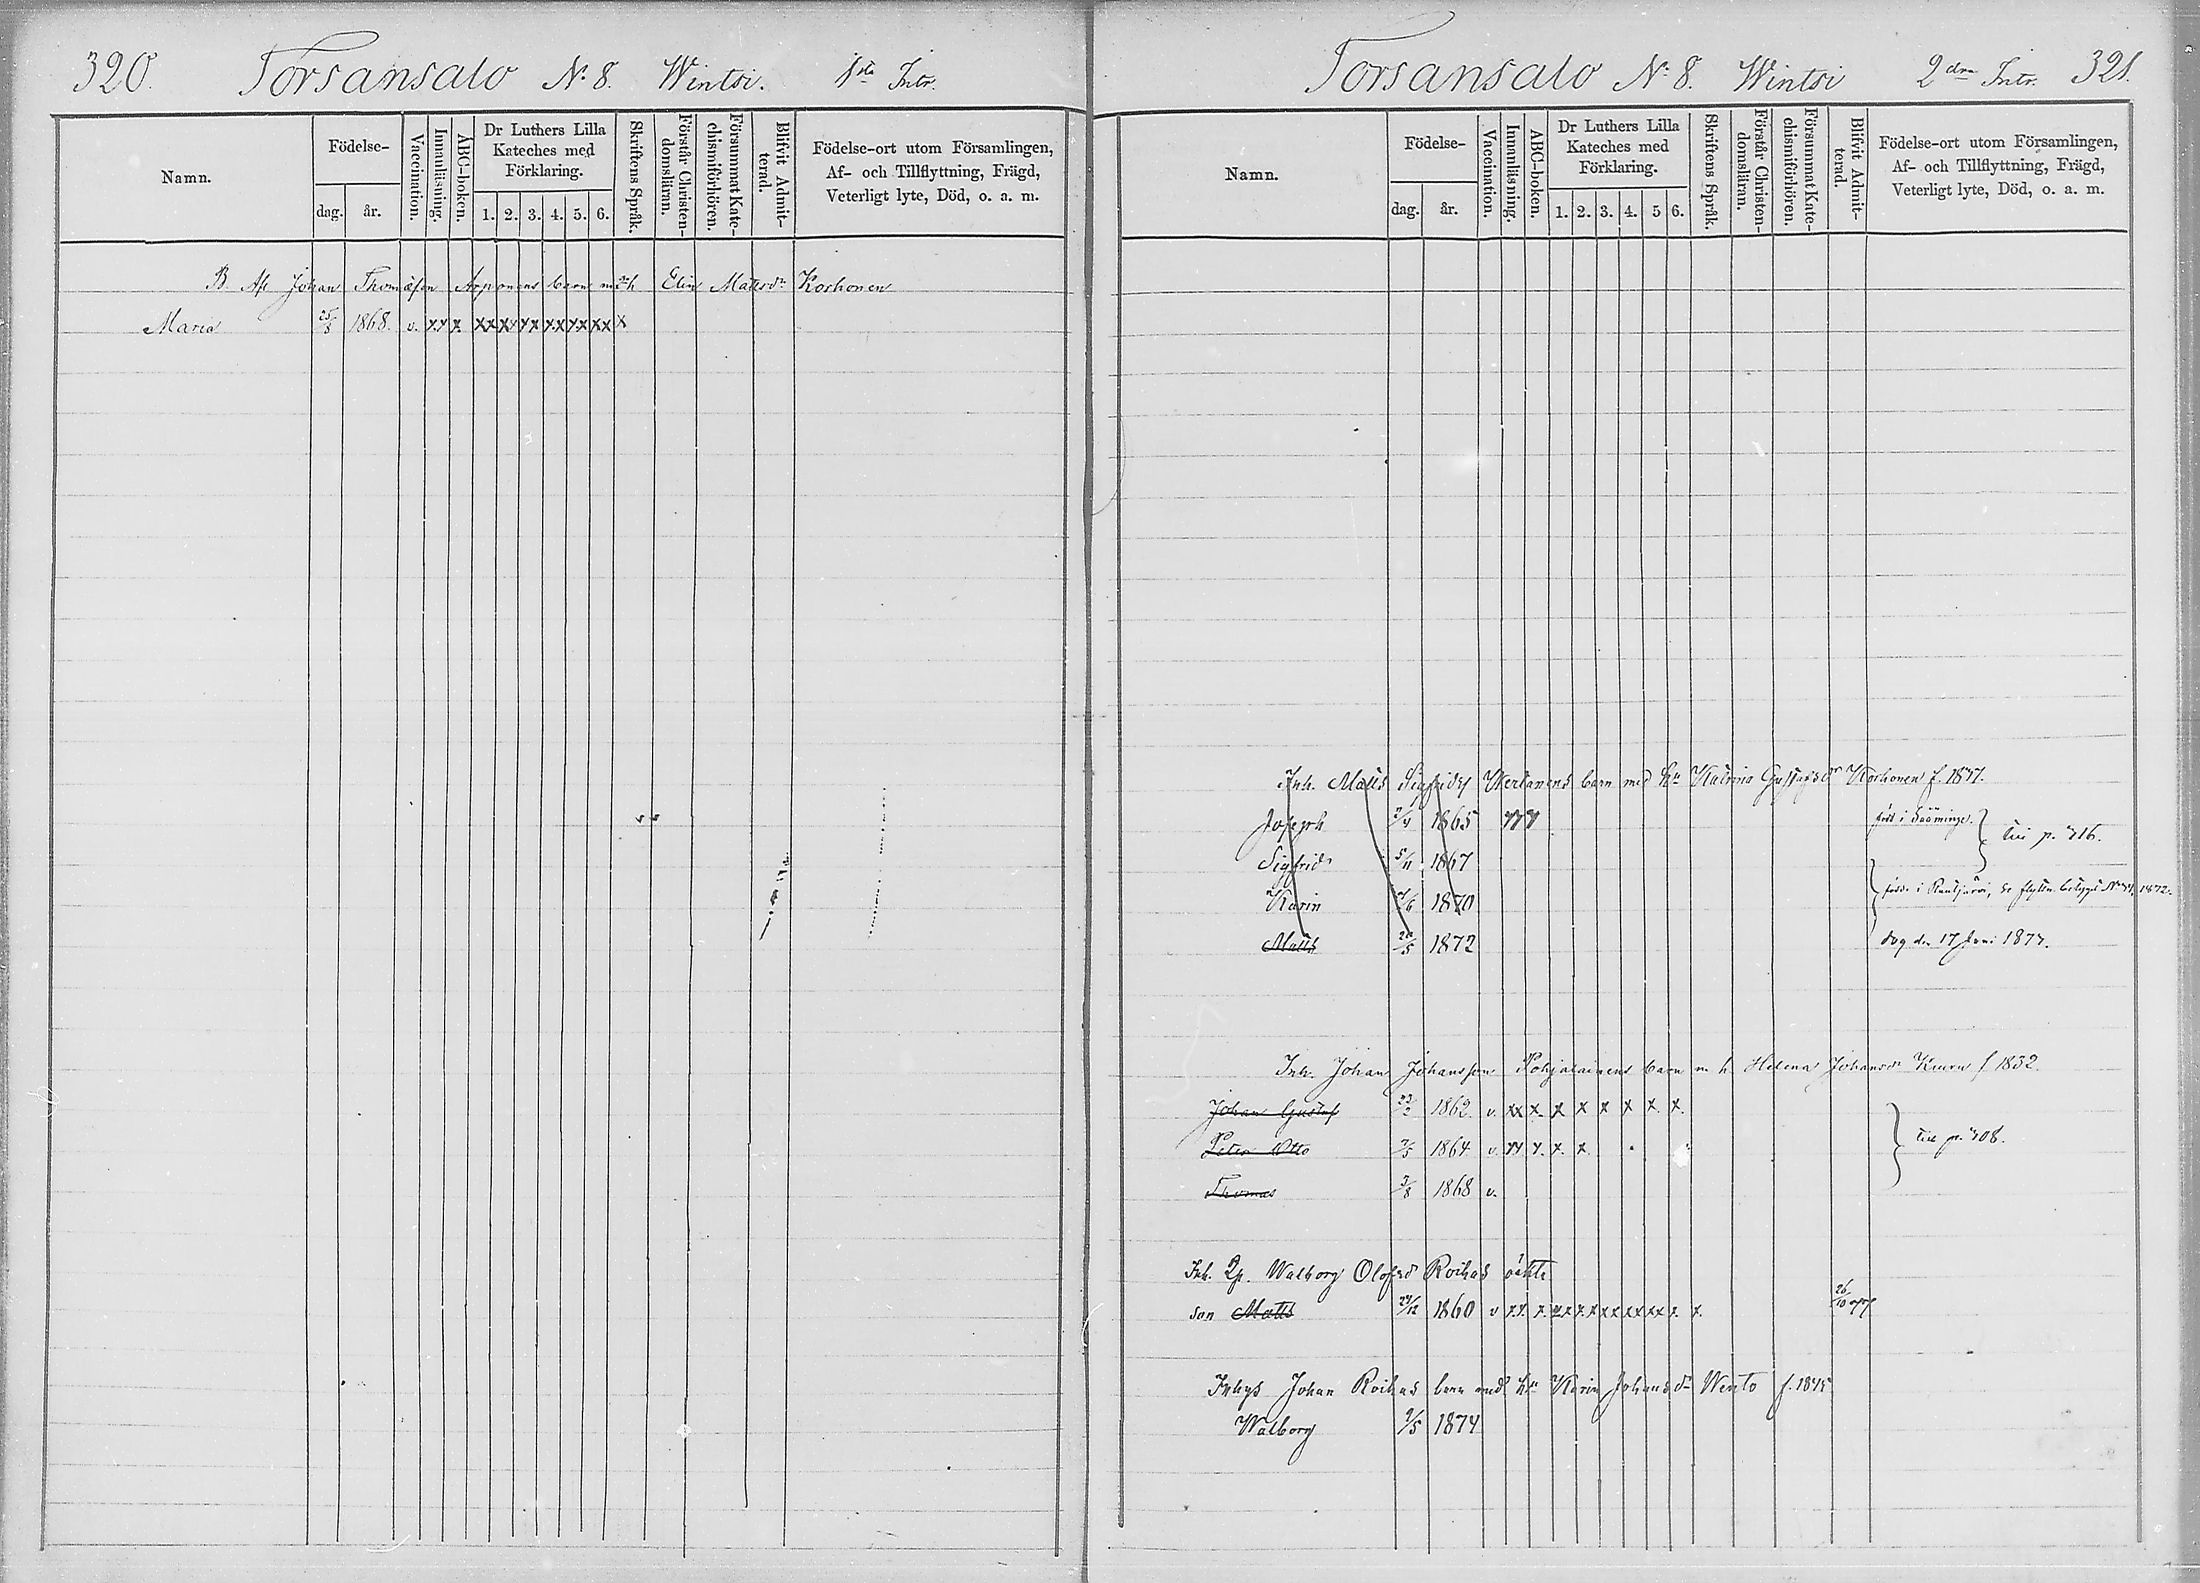 320. Torsansalo No 8. Wintsi. 1sta Intr.
Namn.
Födelse-
dag.
år.
Vaccination.
Innanläsning.
ABC-boken.
Dr Luthers Lilla
Kateches med
Förklaring.
1. 2. 3. 4. 5. 6.
Skriftens Språk.
Förstår Christen-
domsläran.
Försummat Kate-
chismiförhören.
Blifvit Admit-
terad.
Födelse-ort utom Församlingen,
Af- och Tillflyttning, Frägd,
Veterligt lyte, Död, o. a. m.
B Johan Thomasson Arponens barn Elin Mattsdr Korhonen
Maria 25/8 1868. v. xx x xx xx xx xx xx xx x
Torsansalo No 8. Wintsi 2dra Intr. 321.
Namn.
Födelse-
dag.
år.
Vaccination.
Innanläsning.
ABC-boken.
Dr Luthers Lilla
Kateches med
Förklaring.
1. 2. 3. 4. 5 6.
Skriftens Språk.
Förstår Christen-
domsläran.
Försummat Kate-
chismiförhören.
Blifvit Admit-
terad.
Födelse-ort utom Församlingen,
Af- och Tillflyttning, Frägd,
Veterligt lyte, Död, o. a. m.
Inh. Matts barn med hu Katrina Korhonen
Joseph 1865 född i Sääminge.
Sigfrid 5/11 1867
Karin 1870 i Rautjärvi, 1872.
Matts 1872 dog den 17 Juni
Inh. Johan Johansson Pohjalainens barn m h. Helena Johansdr Kiuru f 1832.
Johan Gustaf 1862. v. xx x x x x x x x.
Peter Otto 1864 v. x. x.
Thomas 3/8 1868 v.
Inh. Walborg Olofsd Roikas oäkta
son Matts 1860 v
Inhys Johan Roikas barn med hu Karin Johansdr Wento
Walborg 9/5 1874